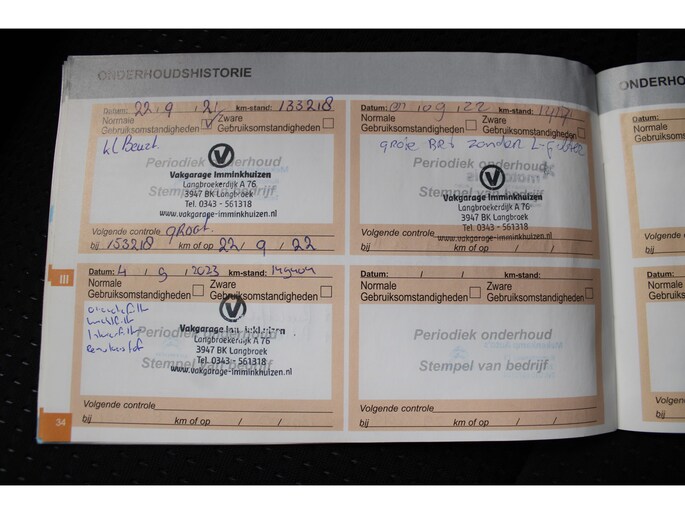 ONDERHOUDSHISTORIE
Datum: 22 / 9 / 21 km-stand: 133218
Normale Gebruiksomstandigheden
Zware Gebruiksomstandigheden
kl Beurt
Periodiek onderhoud
Vakgarage Imminkhuizen
Langbroekerdijk A 76
Stempel van bedrijf
3947 BK Langbroek
Tel. 0343 - 561318
www.vakgarage-imminkhuizen.nl
Volgende controle groot
bij 153218 km of op 22 / 9 / 22
Datum: 09 / 22 km-stand:
Normale Gebruiksomstandigheden
Zware Gebruiksomstandigheden
grote BRT zonder
Periodiek onderhoud
Vakgarage Imminkhuizen
Langbroekerdijk A 76
Stempel van bedrijf
3947 BK Langbroek
Tel. 0343 - 561318
www.vakgarage-imminkhuizen.nl
Volgende controle
bij / km of op / /
Datum: 4 / 9 / 2023 km-stand:
Normale Gebruiksomstandigheden
Zware Gebruiksomstandigheden
Periodiek onderhoud
Vakgarage Imminkhuizen
Langbroekerdijk A 76
3947 BK Langbroek
Stempel van bedrijf
Tel. 0343 - 561318
www.vakgarage-imminkhuizen.nl
Volgende controle
bij km of op / /
Datum: / / km-stand:
Normale Gebruiksomstandigheden
Zware Gebruiksomstandigheden
Periodiek onderhoud
Stempel van bedrijf
Volgende controle
bij km of op / /
III
34
ONDERHO
Datum:
Normale
Gebruik
Volgen
bij
Datum
Norm
Gebr
Volg
bij